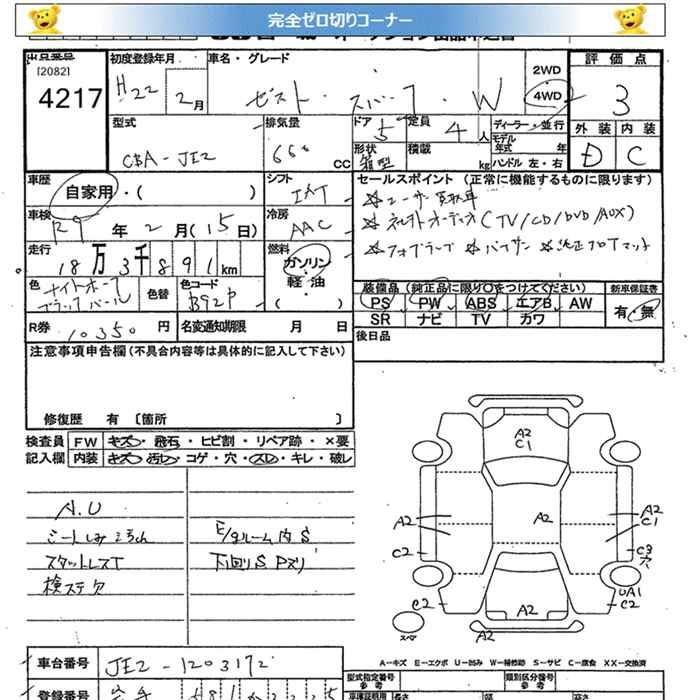 完全ゼロ切りコーナー
出品番号 初度登録年月 車名・グレード 2WD 評価点
[2082] H22 2月 ゼスト・スパーク W 4WD 3
4217
型式 排気量 ドア 5 定員 4 人 ディーラー・並行 外装 内装
CBA-JE2 658 CC 形状 箱型 積載 kg モデル年式 年 D C
ハンドル 左・右
車歴 自家用・( ) シフト IAT セールスポイント(正常に機能するものに限ります)
車検 R9 年 2 月(15日) 冷房 AAC ☆ユーザー買取車
☆ネレクトオーディオ(TV/CD/DVD/AUX)
走行 18万3千891km 燃料 ガソリン・軽油 ☆フォグランプ ☆バイザー ☆純正フロアマット
色 ナイトホークブラックパール 色替 色コード B92P 装備品(純正品に限り○をつけてください) 新車保証書
PS PW ABS エアB AW 有・無
R券 10350 円 名変通知期限 月 日 SR ナビ TV カワ
注意事項申告欄(不具合内容等は具体的に記入して下さい) 後日品
修復歴 有〔箇所 〕
検査員 FW キズ・飛石・ヒビ割・リペア跡・×要
記入欄 内装 キズ・汚れ・コゲ・穴・スレ・キレ・破レ
A.U
シートしみ E/gルーム内S
スタットレスT 下回りS Pズリ
検ステ欠
A2
C1
A2
A2 A2
C1
C2 C3
穴
UA1
C2 C2
A2
スペア A2
A-キズ E-エクボ U-凹み W-補修跡 S-サビ C-腐食 XX-交換済
車台番号 JE2-1203172 型式指定番号 参考 類別区分番号 参考
登録番号 車庫証明用 長さ 幅 高さ